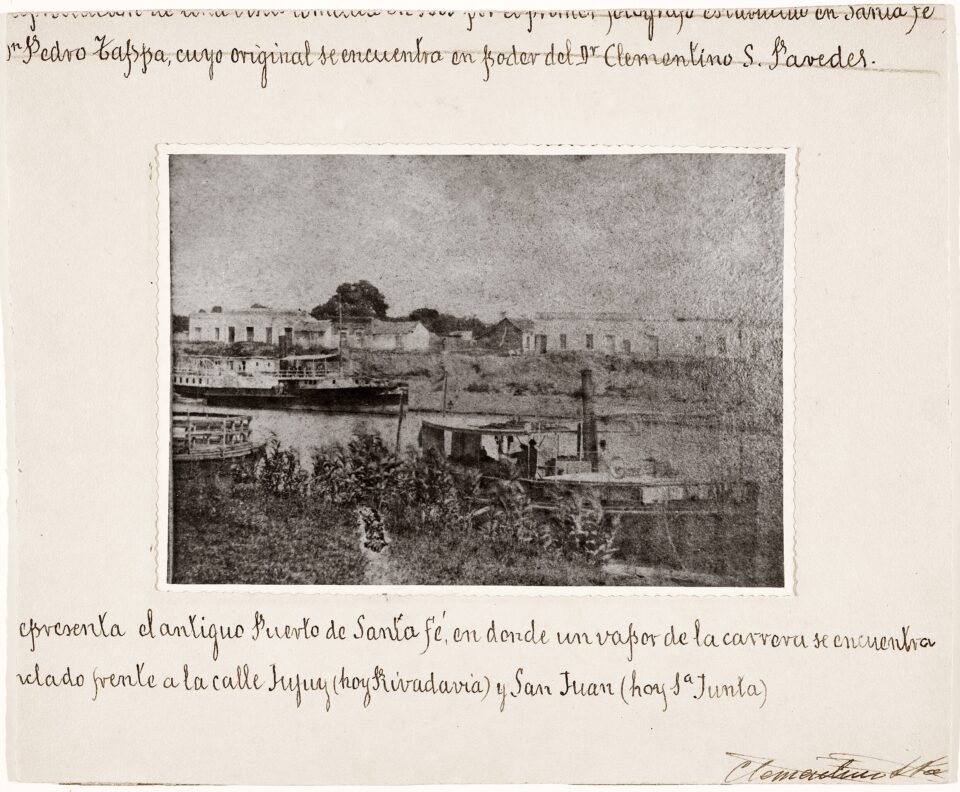 de una vista tomada en por el primer fotógrafo establecido en Santa Fe
n Pedro Tappa, cuyo original se encuentra en poder del Dr Clementino S. Paredes.
epresenta el antiguo Puerto de Santa Fé, en donde un vapor de la carrera se encuentra
clado frente a la calle Jujuy (hoy Rivadavia) y San Juan (hoy 1ª Junta)
Clementino